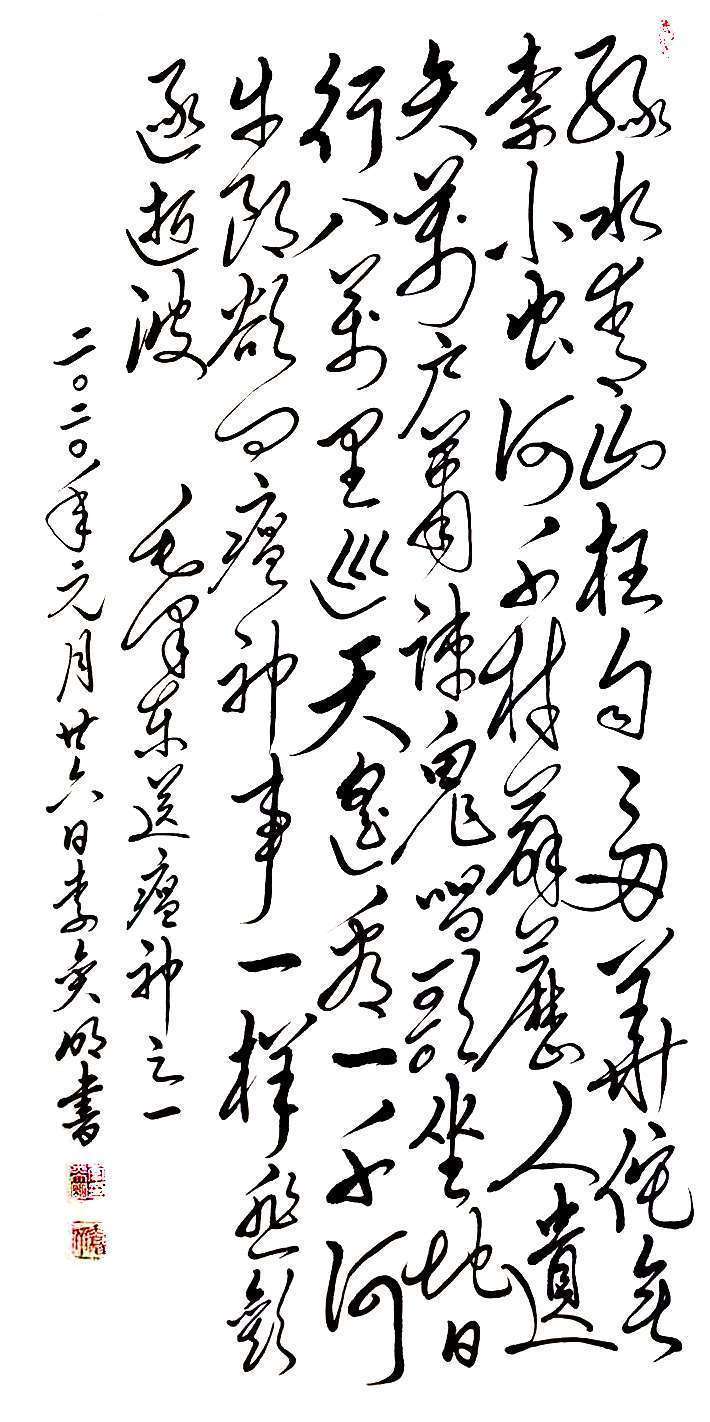 綠水青山枉自多華佗無
奈小虫何千村薜藶人遺
矢萬户蕭疎鬼唱歌坐地日
行八萬里巡天遙看一千河
牛郎欲问瘟神事一样悲歡
逐逝波 毛澤東送瘟神之一
二〇二〇年元月廿六日李明書